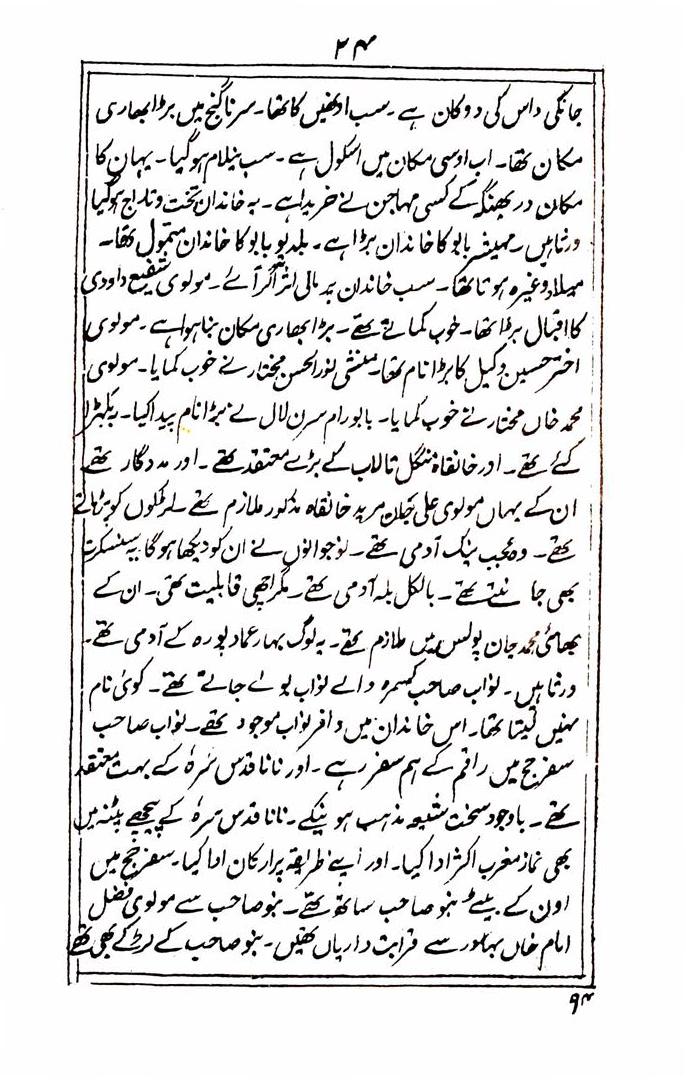 ۲۴
جانکی داس کی دوکان ہے۔ سب اونھیں کا تھا۔ سرناگنج میں بڑا بھاری
مکان تھا۔ اب اوسی مکان میں اسکول ہے۔ سب نیلام ہو گیا۔ یہان کا
مکان دربھنگہ کے کسی مہاجن نے خریدا ہے۔ یہ خاندان تخت و تاراج ہو گیا
ورثا ہیں۔ مہیشر بابو کا خاندان بڑا ہے۔ بلدیو بابو کا خاندان متمول تھا۔
میلاد وغیرہ ہوتا تھا۔ سب خاندان پر مالی اثر آئے۔ مولوی شفیع داودی
کا اقبال بڑا تھا۔ خوب کماتے تھے۔ بڑا بھاری مکان بنا ہوا ہے۔ مولوی
اختر حسین وکیل کا بڑا نام تھا۔ منشی نور الحسن مختار نے خوب کمایا۔ مولوی
محمد خاں مختار نے خوب کمایا۔ بابو رام سرن لال نے بڑا نام پیدا کیا۔ پکڑا
گئے تھے۔ اور خانقاہ منگل تالاب کے بڑے معتقد تھے۔ اور مددگار تھے
ان کے یہاں مولوی علی جان مرید خانقاہ مذکور ملازم تھے لڑکوں کو پڑھاتے
تھے۔ وہ عجب نیک آدمی تھے۔ نوجوانوں نے ان کو دیکھا ہوگا یہ سنسکرت
بھی جانتے تھے۔ بالکل بلہ آدمی تھے۔ مگر اچھی قابلیت تھی۔ ان کے
بھائی محمد جان پولس میں ملازم تھے۔ یہ لوگ بہار عماد پورہ کے آدمی تھے۔
ورثا ہیں۔ نواب صاحب کسمرہ والے نواب بولے جاتے تھے۔ کوئی نام
نہیں لیتا تھا۔ اس خاندان میں وافر نواب موجود تھے۔ نواب صاحب
سفر حج میں راقم کے ہم سفر رہے۔ اور نانا قدس سرہٗ کے بہت معتقد
تھے۔ باوجود سخت شیعہ مذہب ہونیکے۔ نانا قدس سرہٗ کے پیچھے پٹنہ میں
بھی نماز مغرب اکثر ادا کیا۔ اور اپنے طریقہ پر ارکان ادا کیا۔ سفر حج میں
اون کے بیٹے بنو صاحب ساتھ تھے۔ بنو صاحب سے مولوی فضل
امام خاں بہادر سے قرابت داریاں تھیں۔ بنو صاحب کے لڑکے بھی تھے
۹۴